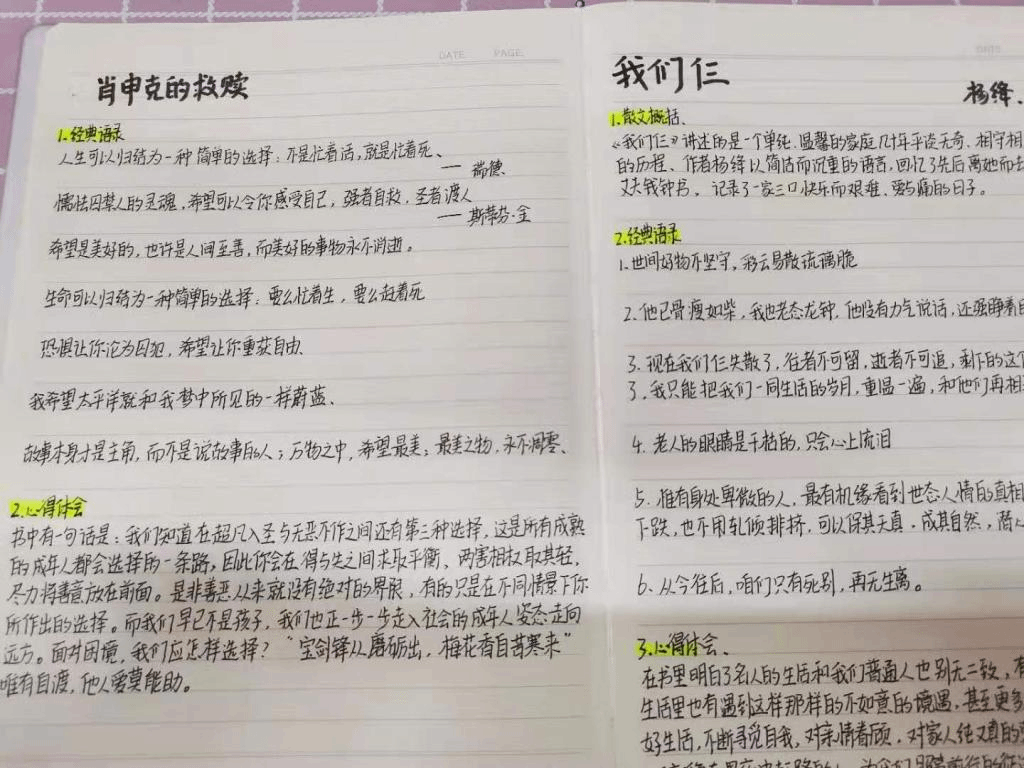 DATE PAGE
肖申克的救赎
1.经典语录
人生可以归结为一种简单的选择：不是忙着活，就是忙着死、
——瑞德、
懦怯囚禁人的灵魂，希望可以令你感受自己，强者自救，圣者渡人
——斯蒂芬·金
希望是美好的，也许是人间至善，而美好的事物永不消逝。
生命可以归结为一种简单的选择：要么忙着生，要么赶着死
恐惧让你沦为囚犯，希望让你重获自由、
我希望太平洋就和我梦中所见的一样蔚蓝、
故事本身才是主角，而不是说故事的人；万物之中，希望最美；最美之物，永不凋零、
2.心得体会
书中有一句话是：我们知道在超凡入圣与无恶不作之间还有第三种选择，这是所有成熟
的成年人都会选择的一条路，因此你会在得与失之间求取平衡、两害相权取其轻，
尽力将善意放在前面。是非善恶从来就没有绝对的界限，有的只是在不同情景下你
所作出的选择。而我们早已不是孩子，我们也正一步一步走入社会的成年人姿态走向
远方。面对困境，我们应怎样选择？“宝剑锋从磨砺出，梅花香自苦寒来”
唯有自渡，他人爱莫能助。
DATE
我们仨
杨绛、
1.散文概括、
《我们仨》讲述的是一个单纯、温馨的家庭几十年平淡无奇、相守相
的历程、作者杨绛以简洁而沉重的语言，回忆了先后离她而去
丈夫钱钟书、记录了一家三口快乐而艰难、爱与痛的日子。
2.经典语录
1.世间好物不坚牢，彩云易散琉璃脆
2.他已骨瘦如柴，我也老态龙钟、他没有力气说话，还强睁着
3.现在我们仨失散了，往者不可留，逝者不可追，剩下的这个
了，我只能把我们一同生活的岁月，重温一遍，和他们再相
4.老人的眼睛是干枯的，只会心上流泪
5.惟有身处卑微的人，最有机缘看到世态人情的真相
下跌，也不用轧倾排挤，可以保其天真，成其自然，潜心
6.从今往后，咱们只有死别，再无生离。
3.心得体会、
在书里明白了名人的生活和我们普通人也别无二致，有
生活里也有遇到这样那样的不如意的境遇，甚至更多
好生活，不断寻觅自我，对亲情眷顾，对家人纯真的